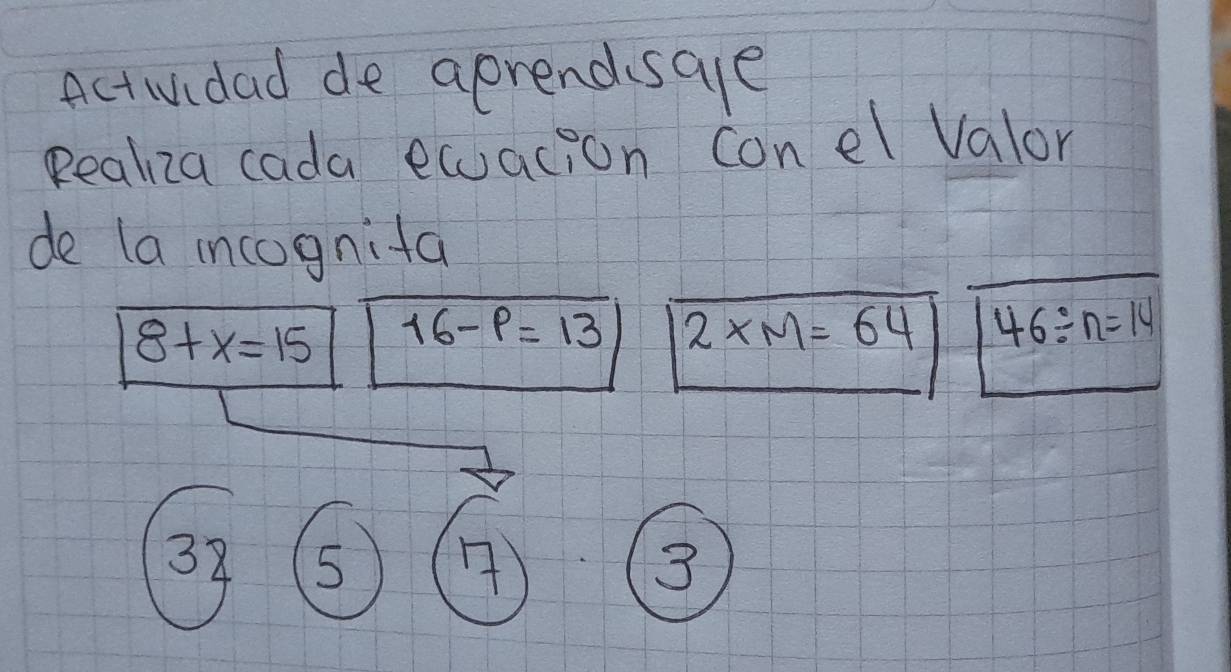 Actividad de aprendisaje
Realiza cada ecuación con el valor
de la incognita
8+x=15 16-P=13 2×M=64 46÷n=14
32 5 7 3